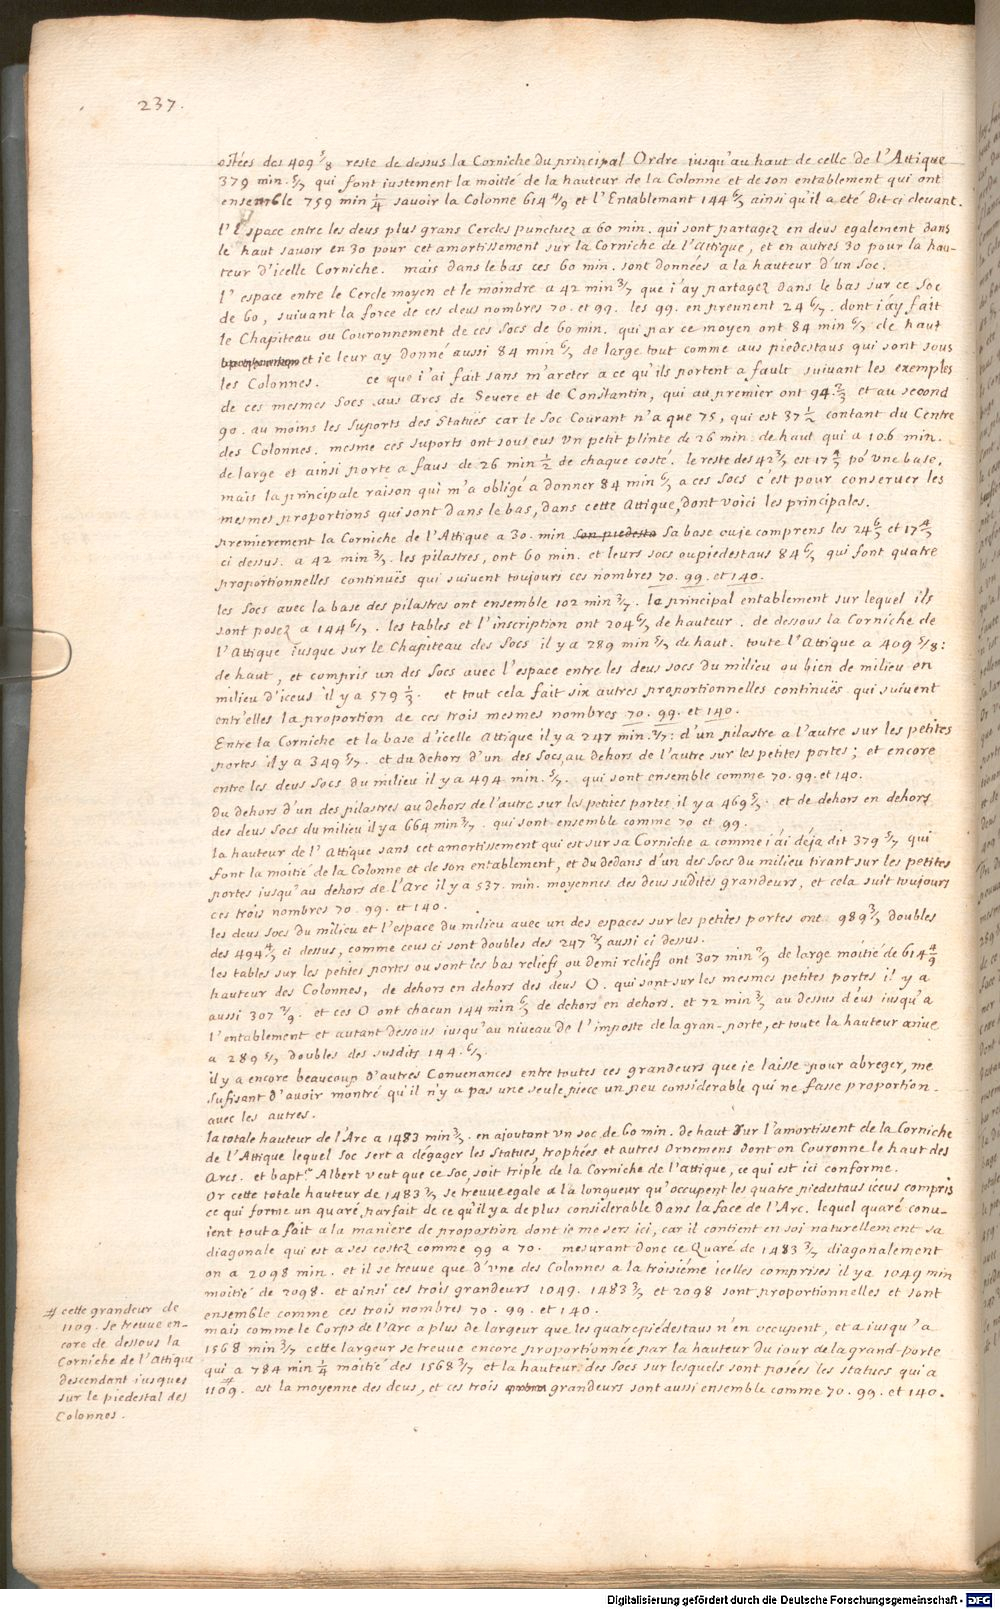 237.
ostées des 409 5/8 reste de dessus la Corniche du principal Ordre iusqu'au haut de celle de l'Attique
379 min. 5/7 qui font iustement la moitié de la hauteur de la Colonne et de son entablement qui ont
ensemble 759 min 1/4 savoir la Colonne 614 4/9 et l'Entablemant 144 6/7 ainsi qu'il a eté dit ci devant.
l'Espace entre les deus plus grans Cercles punctuez a 60 min. qui sont partagez en deus egalement dans
le haut savoir en 30 pour cet amortissement sur la Corniche de l'Attique, et en autres 30 pour la hau-
teur d'icelle Corniche. mais dans le bas ces 60 min. sont données a la hauteur d'un soc.
l'espace entre le Cercle moyen et le moindre a 42 min 3/7 que i'ay partagez dans le bas sur ce soc
de 60, suivant la force de ces deus nombres 70. et 99. les 99. en prennent 24 6/7. dont i'ay fait
le Chapiteau ou Couronnement de ces socs de 60 min. qui par ce moyen ont 84 min 6/7 de haut
et ie leur ay donné aussi 84 min 6/7 de large tout comme aus piedestaus qui sont sous
les Colonnes. ce que i'ai fait sans m'areter a ce qu'ils portent a fault suivant les exemples
de ces mesmes socs aus arcs de Severe et de Constantin, qui au premier ont 94 2/3 et au second
90. au moins les suports des Statuës car le soc Courant n'a que 75, qui est 37 1/2 contant du Centre
des Colonnes. mesme ces suports ont sous eus un petit plinte de 26 min. de haut qui a 106 min.
de large et ainsi porte a faus de 26 min 1/2 de chaque costé. le reste des 42 3/7 est 17 4/7 po^r une base.
mais la principale raison qui m'a obligé a donner 84 min 6/7 a ces socs c'est pour conserver les
mesmes proportions qui sont dans le bas, dans cette Attique, dont voici les principales.
premierement la Corniche de l'Attique a 30. min son piedesta sa base ou je comprens les 24 6/7 et 17 4/7
ci dessus. a 42 min 3/7. les pilastres, ont 60 min. et leurs socs ou piedestaus 84 6/7 qui sont quatre
proportionnelles continuës qui suivent toujours ces nombres 70. 99. et 140.
les socs avec la base des pilastres ont ensemble 102 min 3/7. le principal entablement sur lequel ils
sont posez a 144 6/7. les tables et l'inscription ont 204 6/7 de hauteur. de dessous la Corniche de
l'Attique iusque sur le Chapiteau des socs il y a 289 min 5/7 de haut. toute l'Attique a 409 5/8:
de haut, et compris un des socs avec l'espace entre les deus socs du milieu ou bien de milieu en
milieu d'iceus il y a 579 1/3. et tout cela fait six autres proportionnelles continuës qui suivent
entr'elles la proportion de ces trois mesmes nombres 70. 99. et 140.
Entre la Corniche et la base d'icelle Attique il y a 247 min. 2/7: d'un pilastre a l'autre sur les petites
portes il y a 349 5/7. et du dehors d'un des socs au dehors de l'autre sur les petites portes; et encore
entre les deus socs du milieu il y a 494 min. 5/7. qui sont ensemble comme 70. 99. et 140.
Du dehors d'un des pilastres au dehors de l'autre sur les petites portes il y a 469 5/7. et de dehors en dehors
des deus socs du milieu il y a 664 min 3/7. qui sont ensemble comme 70 et 99.
la hauteur de l'Attique sans cet amortissement qui est sur sa Corniche a comme i'ai déja dit 379 5/7 qui
font la moitié de la Colonne et de son entablement, et du dedans d'un des socs du milieu tirant sur les petites
portes iusqu'au dehors de l'Arc il y a 537. min. moyennes des deus sudites grandeurs, et cela suit toujours
ces trois nombres 70. 99. et 140.
les deus socs du milieu et l'espace du milieu avec un des espaces sur les petites portes ont 989 3/7 doubles
des 494 4/7 ci dessus, comme ceus ci sont doubles des 247 2/7 aussi ci dessus.
les tables sur les petites portes ou sont les bas reliefs, ou demi reliefs ont 307 min 2/9 de large moitié de 614 4/9
hauteur des Colonnes, de dehors en dehors des deus O. qui sont sur les mesmes petites portes il y a
aussi 307 2/9. et ces O ont chacun 144 min 6/7 de dehors en dehors. et 72 min 3/7 au dessus d'eus iusqu'a
l'entablement et autant dessous iusqu'au niveau de l'imposte de la gran-porte, et toute la hauteur arive
a 289 5/7 doubles des susdits 144. 6/7.
il y a encore beaucoup d'autres Convenances entre toutes ces grandeurs que ie laisse pour abreger, me
sufisant d'avoir montré qu'il n'y a pas une seule piece un peu considerable qui ne fasse proportion
avec les autres.
la totale hauteur de l'Arc a 1483 min 3/7. en ajoutant un soc de 60 min. de haut sur l'amortissent de la Corniche
de l'Attique lequel soc sert a dégager les Statuës, trophées et autres Ornemens dont on Couronne le haut des
Arcs. et bapt.^e Albert veut que ce soc, soit triple de la Corniche de l'attique, ce qui est ici conforme.
Or cette totale hauteur de 1483 3/7 se treuve egale a la longueur qu'occupent les quatre piedestaus iceus compris
ce qui forme un quaré parfait de ce qu'il y a de plus considerable dans la face de l'Arc. lequel quaré conv-
ient tout a fait a la maniere de proportion dont ie me sers ici, car il contient en soi naturellement sa
diagonale qui est a ses costez comme 99 a 70. mesurant donc ce Quaré de 1483 3/7 diagonalement
on a 2098 min. et il se treuve que d'une des Colonnes a la troisiéme icelles comprises il y a 1049 min
moitié de 2098. et ainsi ces trois grandeurs 1049. 1483 3/7 et 2098 sont proportionnelles et sont
ensemble comme ces trois nombres 70. 99. et 140.
mais comme le Corps de l'Arc a plus de largeur que les quatre piédestaus n'en occupent, et a iusqu'a
1568 min 3/7 cette largeur se treuve encore proportionnée par la hauteur du jour de la grand-porte
qui a 784 min 1/4 moitié des 1568 3/7 et la hauteur des socs sur lesquels sont posées les statues qui a
1109. # est la moyenne des deus, et ces trois grandeurs sont aussi ensemble comme 70. 99. et 140.
# cette grandeur de
1109. se treuve en-
core de dessous la
Corniche de l'Attique
descendant iusques
sur le piedestal des
Colonnes.
Digitalisierung gefördert durch die Deutsche Forschungsgemeinschaft - DFG